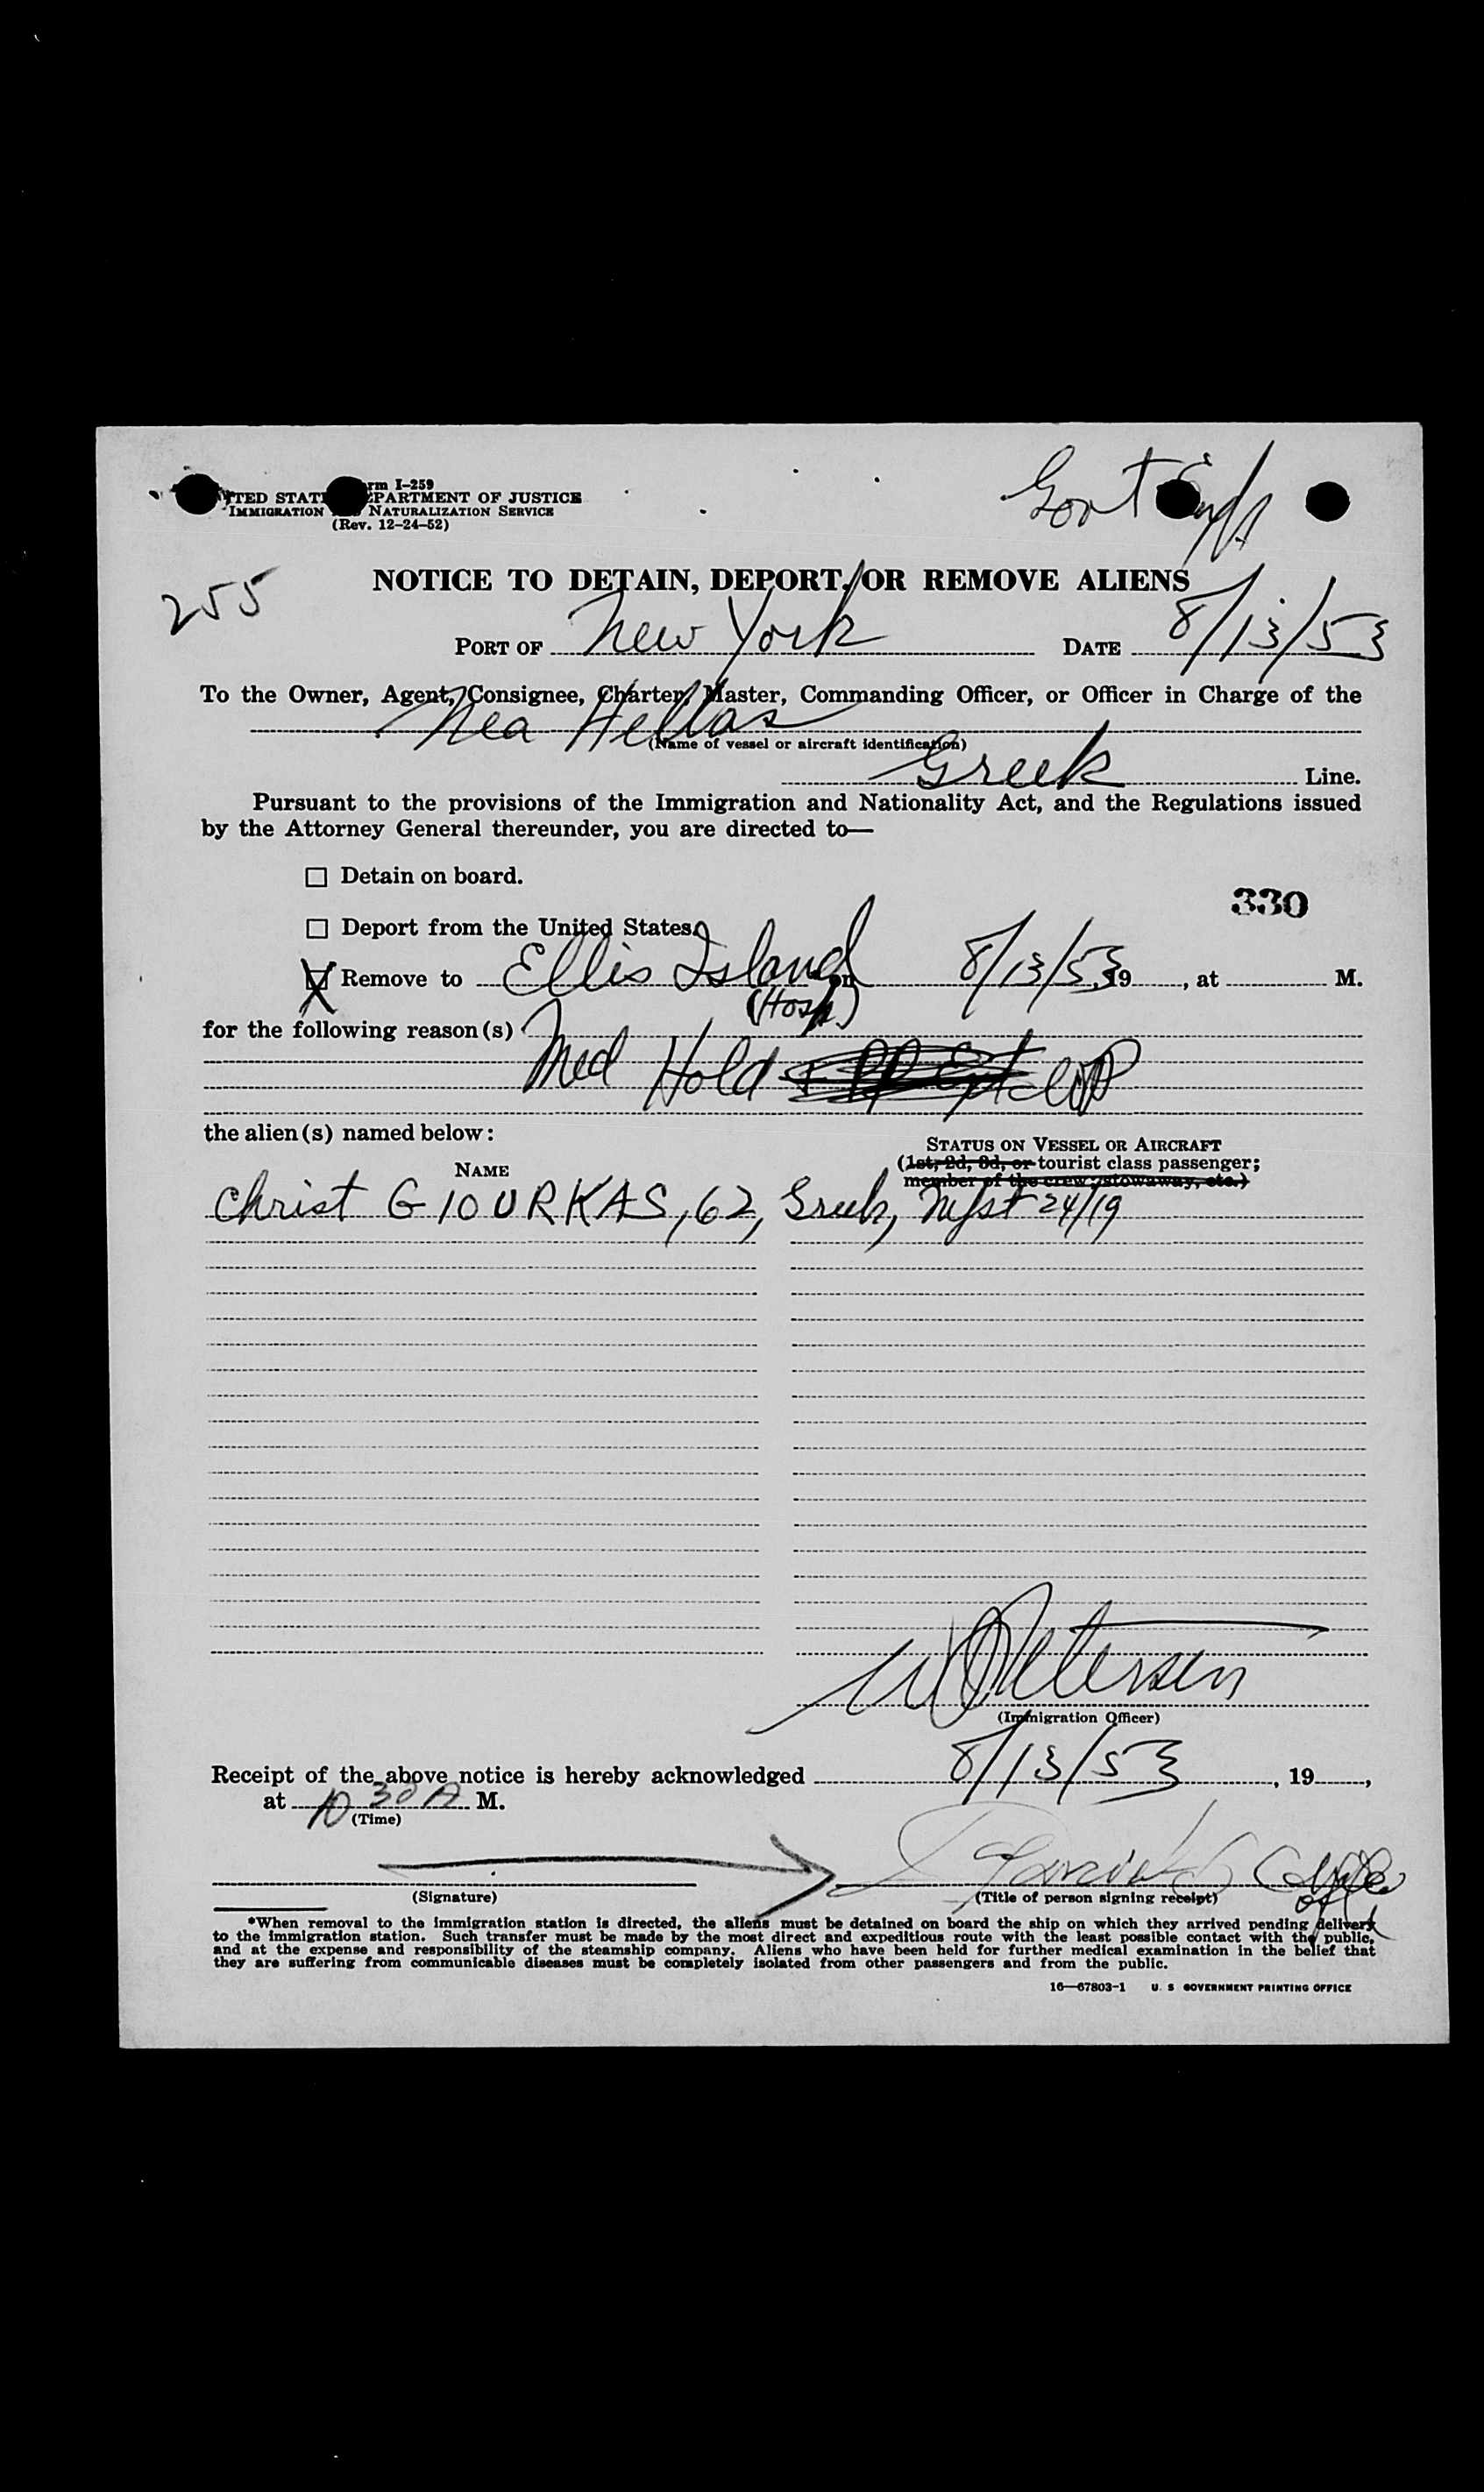 rm I-259
TED STAT EPARTMENT OF JUSTICE
IMMIGRATION NATURALIZATION SERVICE
(Rev. 12-24-52)
Govt
255
NOTICE TO DETAIN, DEPORT, OR REMOVE ALIENS
PORT OF New York DATE 8/13/53
To the Owner, Agent, Consignee, Charter, Master, Commanding Officer, or Officer in Charge of the
Nea Hellas
(Name of vessel or aircraft identification)
Greek Line.
Pursuant to the provisions of the Immigration and Nationality Act, and the Regulations issued
by the Attorney General thereunder, you are directed to—
Detain on board.
330
Deport from the United States.
X Remove to Ellis Island on 8/13/53, 19 , at M.
(Hosp.)
for the following reason(s)
Med Hold
the alien(s) named below:
STATUS ON VESSEL OR AIRCRAFT
(1st, 2d, 3d, or tourist class passenger;
member of the crew; stowaway, etc.)
NAME
Christ GIOURKAS, 62, Greek, Mfst 24/19
Petersen
(Immigration Officer)
Receipt of the above notice is hereby acknowledged 8/13/53, 19 ,
at 10 30 A M.
(Time)
(Signature)
(Title of person signing receipt)
*When removal to the immigration station is directed, the aliens must be detained on board the ship on which they arrived pending delivery
to the immigration station. Such transfer must be made by the most direct and expeditious route with the least possible contact with the public,
and at the expense and responsibility of the steamship company. Aliens who have been held for further medical examination in the belief that
they are suffering from communicable diseases must be completely isolated from other passengers and from the public.
16—67803-1 U. S GOVERNMENT PRINTING OFFICE